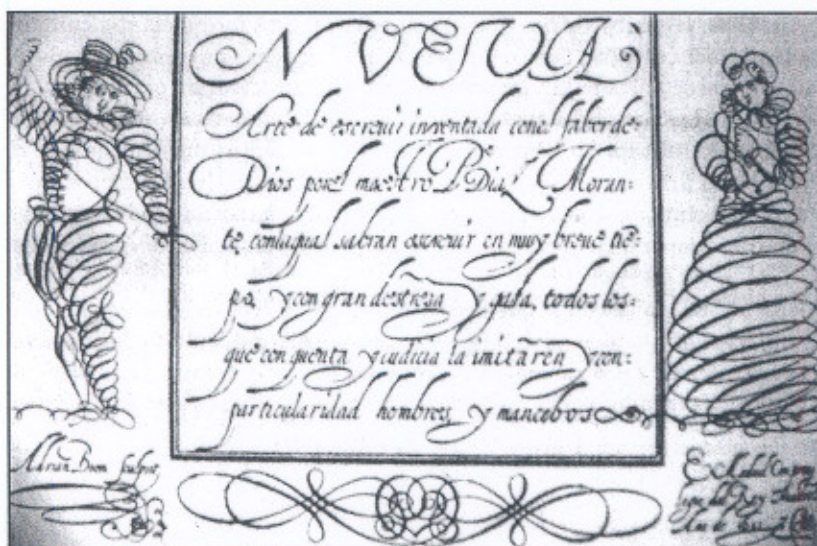 NUEVA
Arte de escreuir inventada con el saber de
Dios por el maestro Pº Diaz Moran:
te, con la qual sabran escreuir en muy breue tiē:
po, y con gran destreza y gala, todos los:
que con quenta y iudicia la imitaren y con:
particularidad hombres y mancebos
Adrian Boon sculpsit
En Madrid
del Rey
Año de